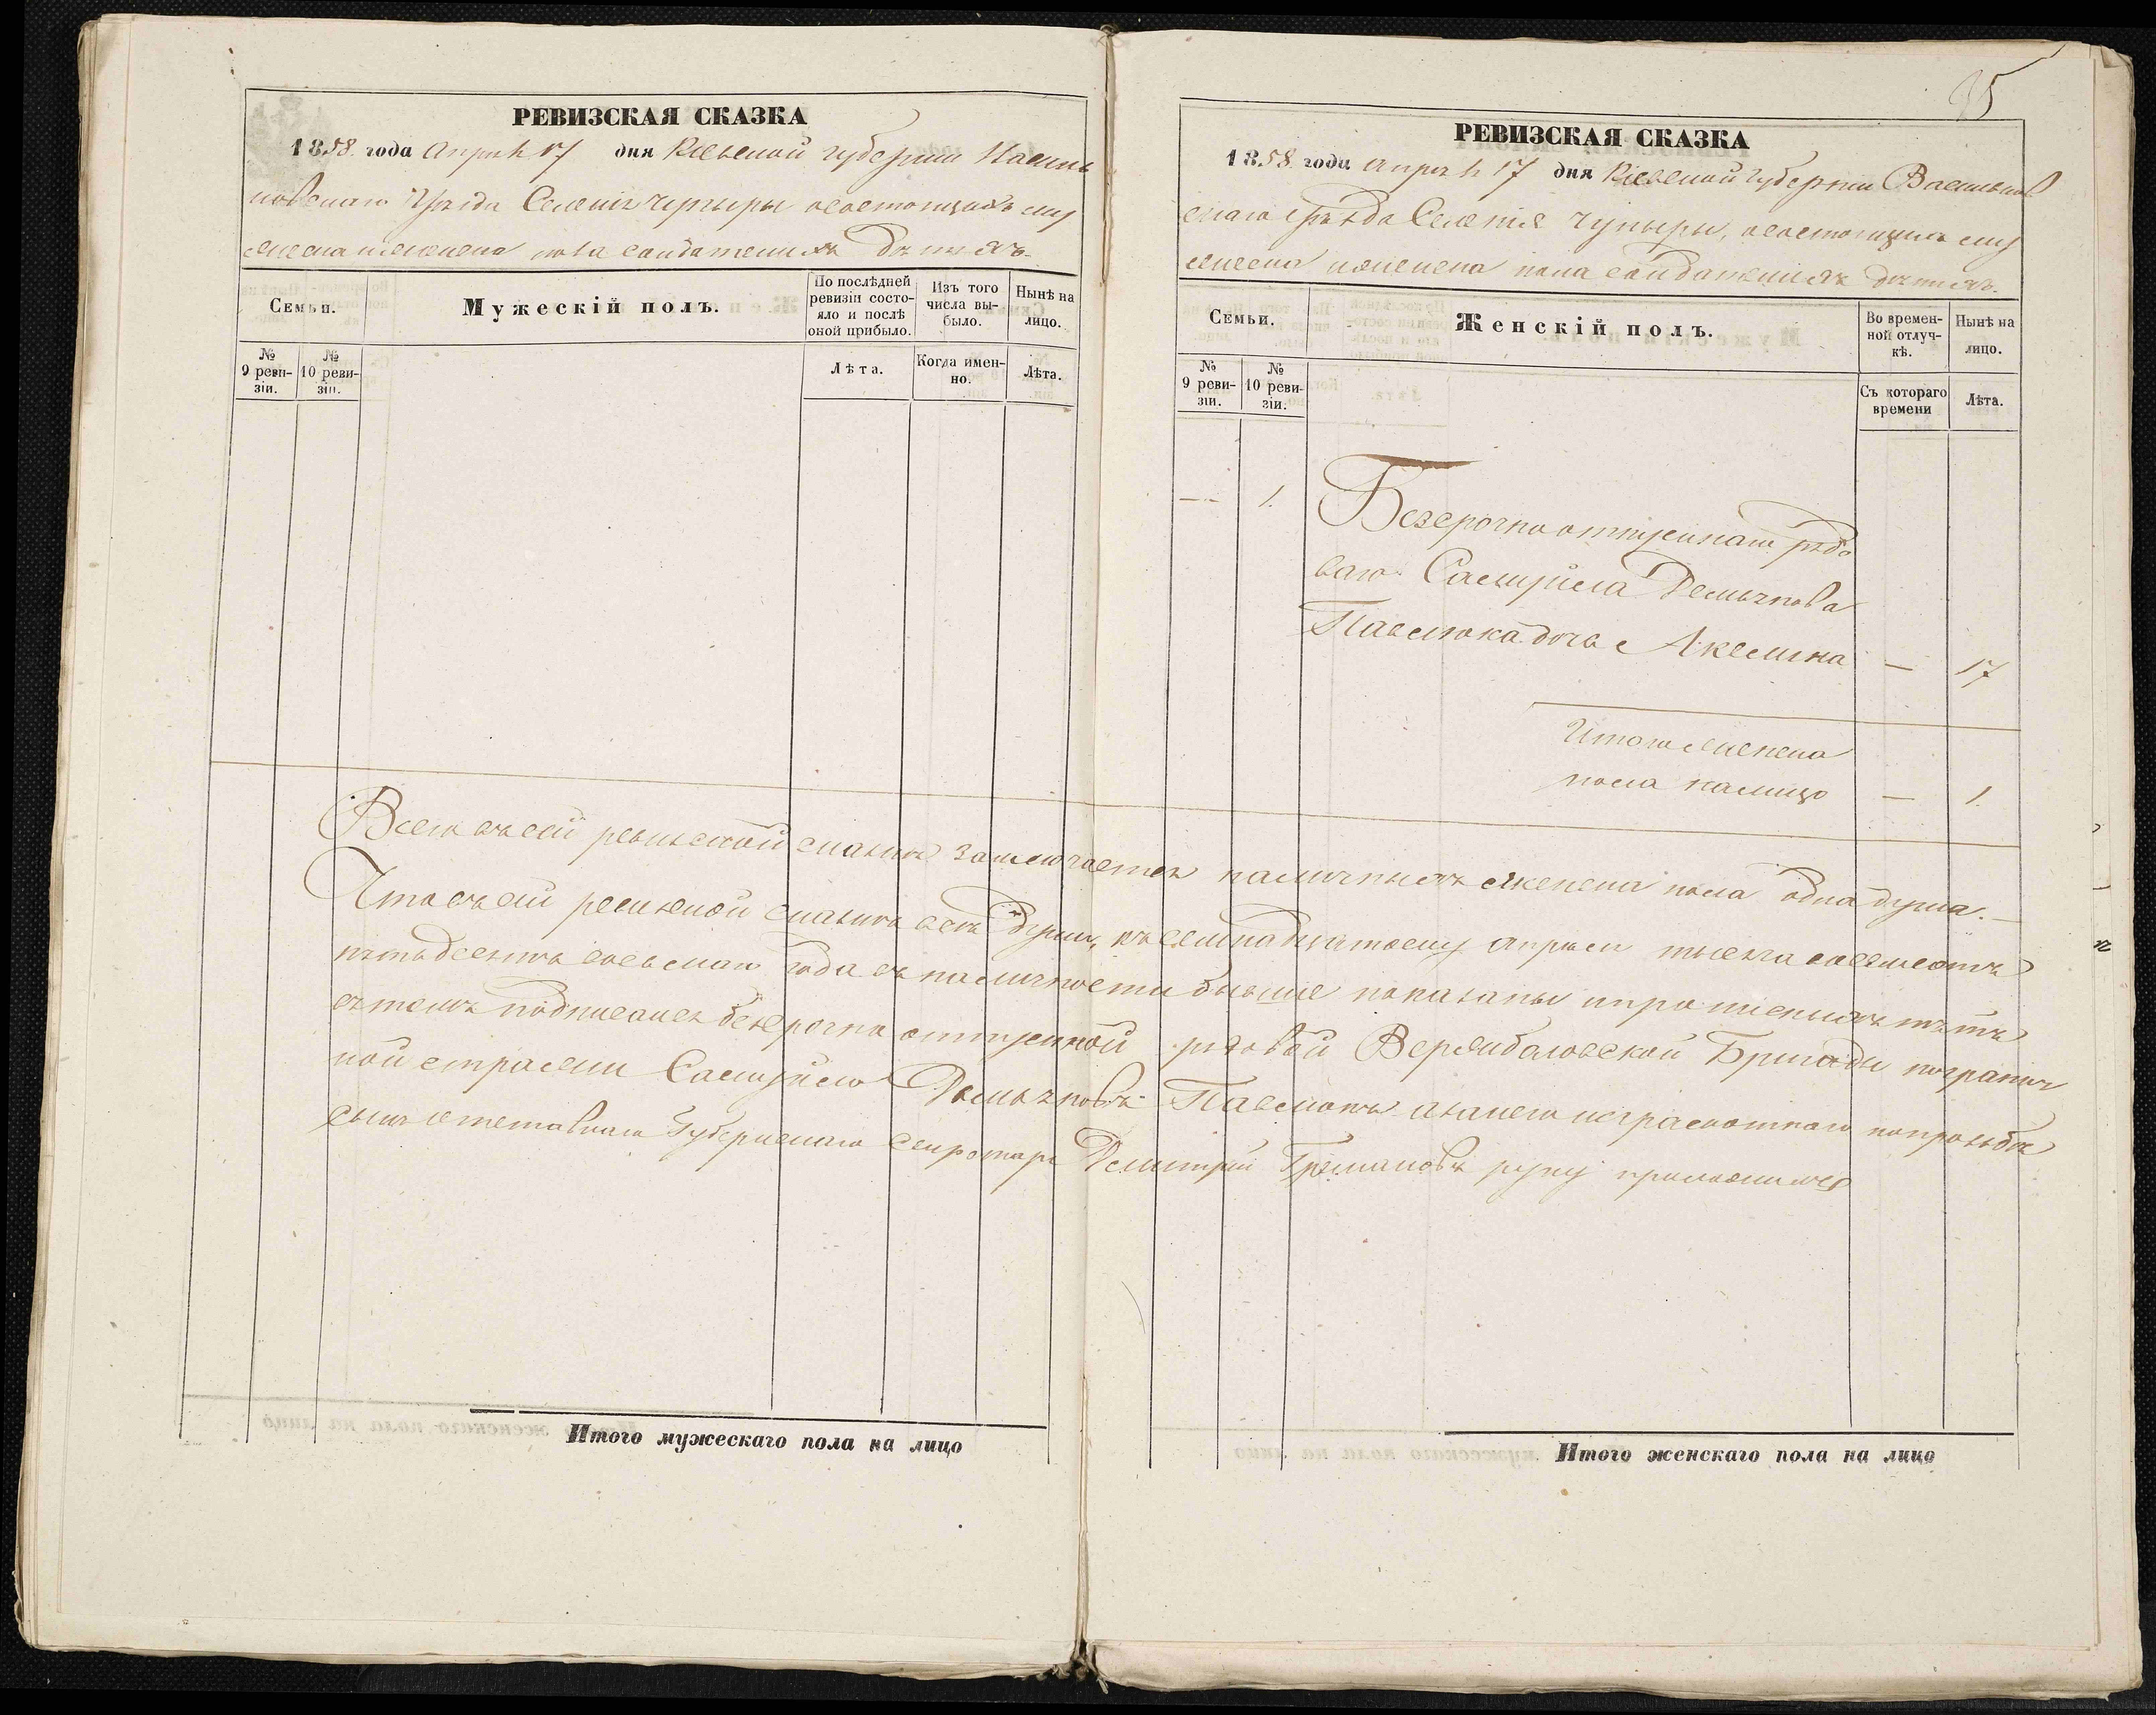 РЕВИЗСКАЯ СКАЗКА
1858 года Апреля 17 дня Кіевской губерніи Василь
ковскаго Уѣзда Селенія Чупыры о состоящихъ му
жеска и женска пола солдатскихъ дѣтяхъ.
Семьи.
Мужескій полъ.
По послѣдней ревизіи состояло и послѣ оной прибыло.
Изъ того числа выбыло.
Нынѣ на лицо.
№ 9 ревизіи.
№ 10 ревизіи.
Лѣта.
Когда именно.
Лѣта.
Итого мужескаго пола на лицо
95
РЕВИЗСКАЯ СКАЗКА
1858 года Апреля 17 дня Кіевской Губерніи Васильков
скаго Уѣзда Селенія Чупыры, о состоящихъ му
жеска и женска пола солдатскихъ дѣтяхъ.
Семьи.
Женскій полъ.
Во временной отлучкѣ.
Нынѣ на лицо.
№ 9 ревизіи.
№ 10 ревизіи.
Съ котораго времени
Лѣта.
— 1. Безсрочно отпускнаго рядо
ваго Самуйла Демьянова
Павлюка дочь Акелина — 17
Итого женска
пола налицо — 1.
Всего въ сей ревизской сказкѣ заключается наличныхъ женска пола одна душа.—
Что въ сей ревизской сказкѣ всѣ души, къ семнадцатому апрѣля тысяча восемсотъ
пятьдесятъ восьмаго года въ наличности бывшіе показаны и прописныхъ нѣтъ
въ томъ подписался безсрочно отпускной рядовой Вержболовской Бригады погранич
ной стражи Самуйло Демьяновъ Павлюкъ а за него неграмотнаго по прозьбѣ
сынъ отставнаго Губернскаго Секретаря Дмитрій руку приложилъ
Итого женскаго пола на лицо